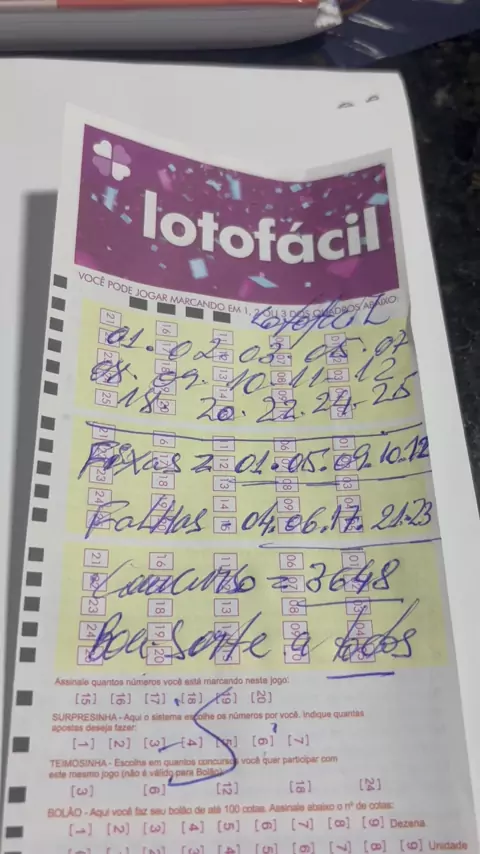 lotofácil
VOCÊ PODE JOGAR MARCANDO EM 1, 2 OU 3 DOS QUADROS ABAIXO:
Lotofácil
01. 02. 03. 05. 07
08. 09. 10. 11. 12
18. 20. 22. 24. 25
Fixas = 01.05.09.10.12
Falhas 04.06.17.21.23
Concurso = 3648
Boa Sorte a todos
Assinale quantos números você está marcando neste jogo:
[15] [16] [17] [18] [19] [20]
SURPRESINHA - Aqui o sistema escolhe os números por você. Indique quantas
apostas deseja fazer:
[1] [2] [3] [4] [5] [6] [7]
TEIMOSINHA - Escolha em quantos concursos você quer participar com
este mesmo jogo (não é válido para Bolão)
[3] [6] [12] [18] [24]
BOLÃO - Aqui você faz seu bolão de até 100 cotas. Assinale abaixo o nº de cotas:
[1] [2] [3] [4] [5] [6] [7] [8] [9] Dezena
[9] Unidade